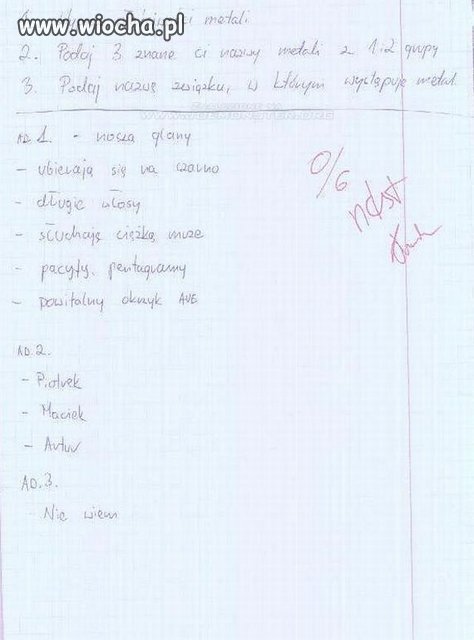 www.wiocha.pl
ci metali
2. Podaj 3 znane ci nazwy metali z 1 i 2 grupy
3. Podaj nazwę związku, w którym występuje metal
AD. 1. - noszą glany
- ubierają się na czarno
- długie włosy
- słuchają ciężką muze
- pacyfy, pentagramy
- powitalny okrzyk AVE
0/6
ndst
AD. 2.
- Piotrek
- Maciek
- Artur
AD. 3.
- Nie wiem